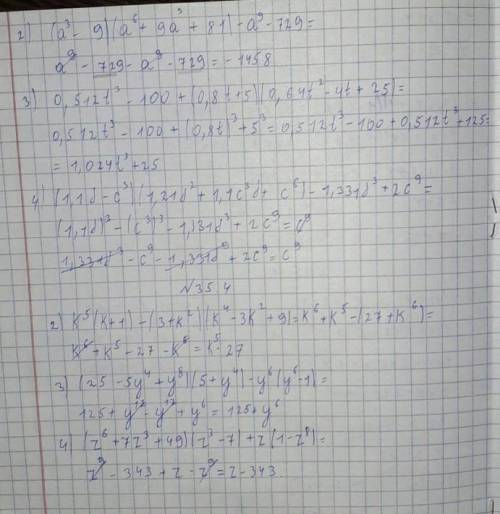 2) (a³ - 9)(a⁶ + 9a³ + 81) - a⁹ - 729 =
a⁹ - 729 - a⁹ - 729 = -1458
3) 0,512t³ - 100 + (0,8t+5)(0,64t² - 4t + 25) =
0,512t³ - 100 + (0,8t)³ + 5³ = 0,512t³ - 100 + 0,512t³ + 125 =
= 1,024t³ + 25
4) (1,1d - c³)(1,21d² + 1,1c³d + c⁶) - 1,331d³ + 2c⁹ =
(1,1d)³ - (c³)³ - 1,331d³ + 2c⁹ = c⁹
1,331d³ - c⁹ - 1,331d³ + 2c⁹ = c⁹
№35.4
2) k⁵(k+1) - (3+k²)(k⁴ - 3k² + 9) = k⁶ + k⁵ - (27 + k⁶) =
k⁶ + k⁵ - 27 - k⁶ = k⁵ - 27
3) (25 - 5y⁴ + y⁸)(5 + y⁴) - y⁶(y⁶ - 1) =
125 + y¹² - y¹² + y⁶ = 125 + y⁶
4) (z⁶ + 7z³ + 49)(z³ - 7) + z(1 - z⁸) =
z⁹ - 343 + z - z⁹ = z - 343